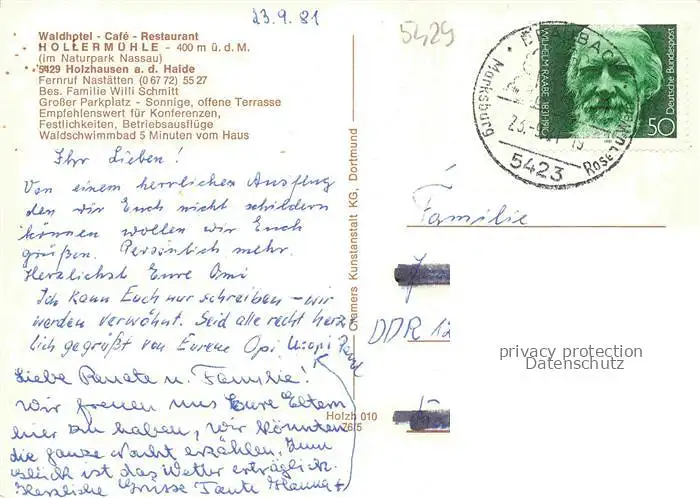 23.9.81
5429
Waldhotel - Café - Restaurant
HOLLERMÜHLE - 400 m ü. d. M.
(im Naturpark Nassau)
5429 Holzhausen a. d. Haide
Fernruf Nastätten (0 67 72) 55 27
Bes. Familie Willi Schmitt
Großer Parkplatz - Sonnige, offene Terrasse
Empfehlenswert für Konferenzen,
Festlichkeiten, Betriebsausflüge
Waldschwimmbad 5 Minuten vom Haus
Ihr Lieben!
Von einem herrlichen Ausflug
den wir Euch nicht schildern
können wollen wir Euch
grüßen. Persönlich mehr.
Herzlichst Eure Omi
Ich kann Euch nur schreiben - wir
werden verwöhnt. Seid alle recht herz-
lich gegrüßt von Eurem Opi
Liebe Renate u. Familie!
Wir freuen uns Eure Eltern
hier zu haben, wir könnten
die ganze Nacht erzählen. Zum
Glück ist das Wetter erträglich.
Herzliche Grüsse Tante Hanna +
Cramers Kunstanstalt KG, Dortmund
Holzh 010
76/5
BRAUBACH
Marksburg
5423
WILHELM RAABE 1831-1910
Deutsche Bundespost
50
Familie
DDR 12
privacy protection
Datenschutz